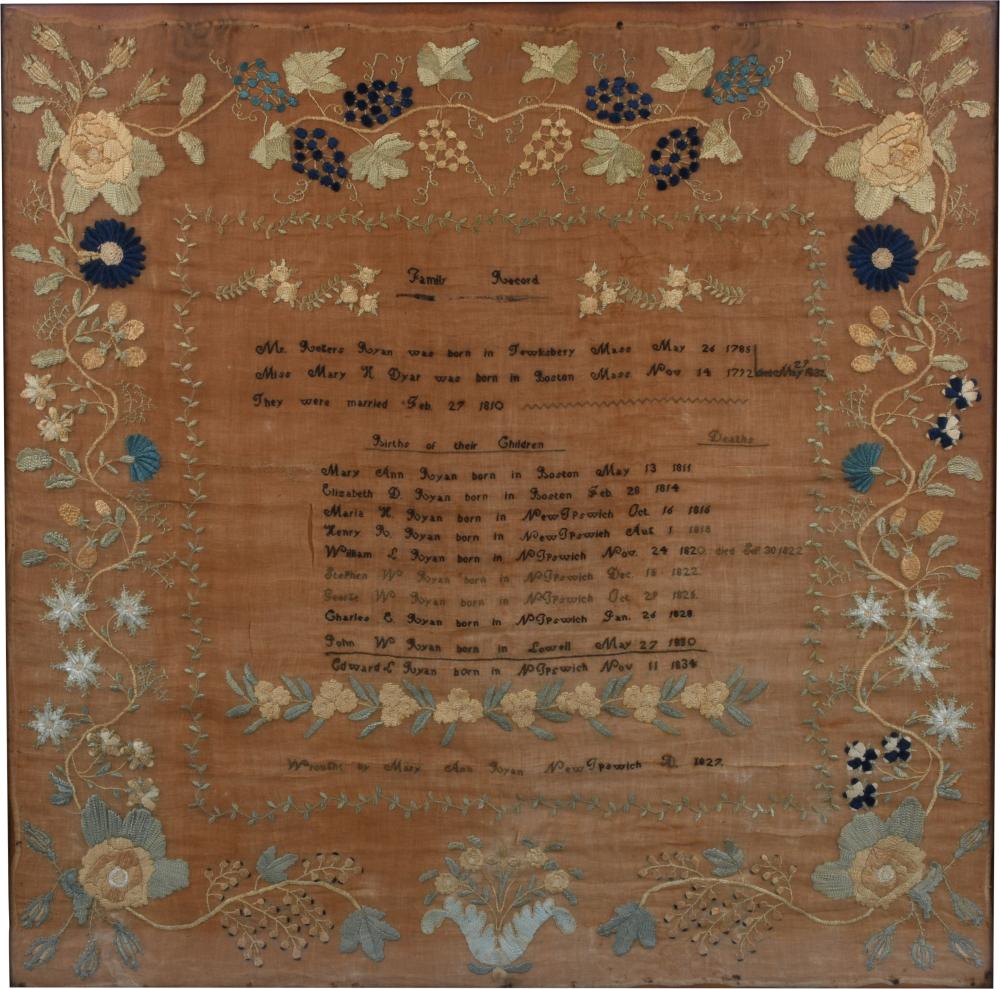 Family Record
Mr. Rogers Ryan was born in Tewksbery Mass May 26 1785
Miss Mary H Dyar was born in Boston Mass Nov 14 1792 died May 27 1832
They were married Feb. 27 1810
Births of their Children Deaths
Mary Ann Ryan born in Boston May 13 1811
Elizabeth D Ryan born in Boston Feb 28 1814
Maria H Ryan born in NewIpswich Oct 16 1816
Henry R Ryan born in NewIpswich Aug 1 1818
William L Ryan born in NIpswich Nov. 24 1820 died 30 1822
Stephen Wm Ryan born in NIpswich Dec. 1822
George Wm Ryan born in NIpswich Oct 29
Charles E Ryan born in NIpswich Jan. 26 1828
John Wm Ryan born in Lowell May 27 1830
Edward L Ryan born in NIpswich Nov 11 1834
Wrought by Mary Ann Ryan NewIpswich 1827